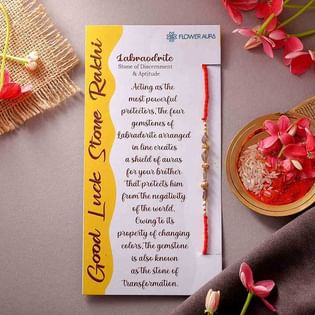 FLOWER AURA
Good Luck Stone Rakhi
Labraodrite
Stone of Discernment
& Aptitude
Acting as the
most powerful
protectors, the four
gemstones of
Labradorite arranged
in line creates
a shield of auras
for your brother
that protects him
from the negativity
of the world.
Owing to its
property of changing
colors, the gemstone
is also known
as the stone of
Transformation.